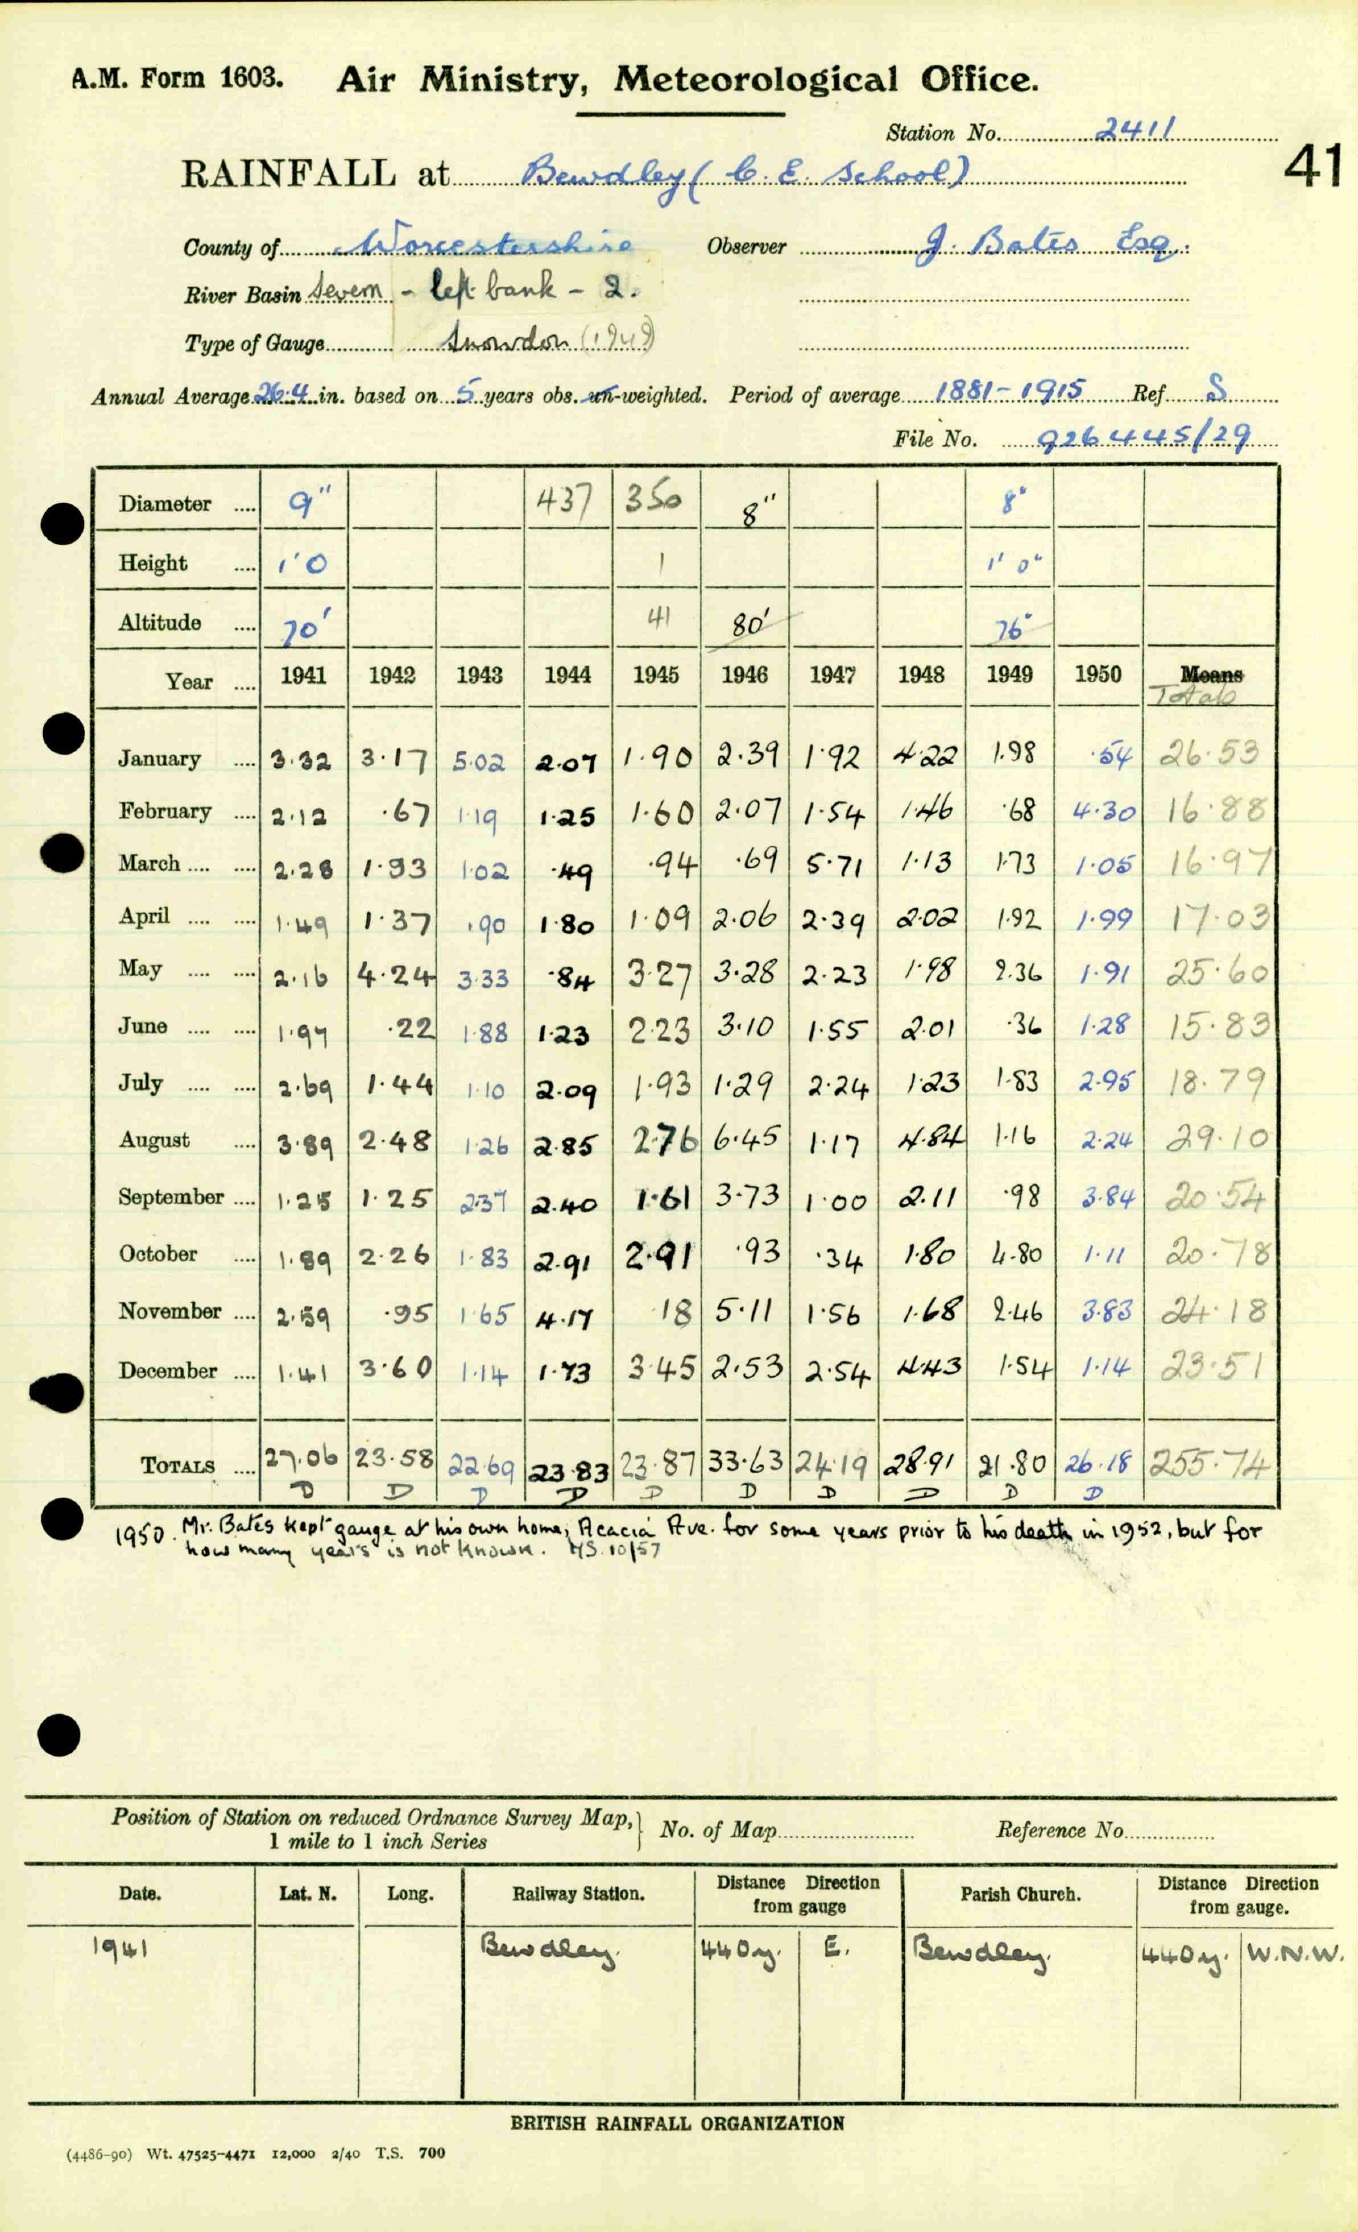 A.M. Form 1603. Air Ministry, Meteorological Office.
Station No. 2411
41
RAINFALL at Bewdley (C. E. School)
County of Worcestershire Observer J. Bates Esq.
River Basin Severn - left bank - 2.
Type of Gauge Snowdon (1948)
Annual Average 26.4 in. based on 5 years obs. un-weighted. Period of average 1881-1915 Ref S
File No. 926445/29
Diameter .... 9" 437 350 8" 8"
Height .... 1'0 1 1' 0"
Altitude .... 70' 41 80' 76'
Year .... 1941 1942 1943 1944 1945 1946 1947 1948 1949 1950 Means
Totals
January .... 3.32 3.17 5.02 2.07 1.90 2.39 1.92 4.22 1.98 .54 26.53
February .... 2.12 .67 1.19 1.25 1.60 2.07 1.54 1.46 .68 4.30 16.88
March .... .... 2.28 1.93 1.02 .49 .94 .69 5.71 1.13 1.73 1.05 16.97
April .... .... 1.49 1.37 .90 1.80 1.09 2.06 2.39 2.02 1.92 1.99 17.03
May .... .... 2.16 4.24 3.33 .84 3.27 3.28 2.23 1.98 2.36 1.91 25.60
June .... .... 1.97 .22 1.88 1.23 2.23 3.10 1.55 2.01 .36 1.28 15.83
July .... .... 2.69 1.44 1.10 2.09 1.93 1.29 2.24 1.23 1.83 2.95 18.79
August .... 3.89 2.48 1.26 2.85 2.76 6.45 1.17 4.84 1.16 2.24 29.10
September .... 1.25 1.25 2.37 2.40 1.61 3.73 1.00 2.11 .98 3.84 20.54
October .... 1.89 2.26 1.83 2.91 2.91 .93 .34 1.80 4.80 1.11 20.78
November .... 2.59 .95 1.65 4.17 .18 5.11 1.56 1.68 2.46 3.83 24.18
December .... 1.41 3.60 1.14 1.73 3.45 2.53 2.54 4.43 1.54 1.14 23.51
TOTALS .... 27.06 23.58 22.69 23.83 23.87 33.63 24.19 28.91 21.80 26.18 255.74
D D D D D D D D D D
1950. Mr. Bates kept gauge at his own home, Acacia Ave. for some years prior to his death in 1952, but for
how many years is not known. 10/57
Position of Station on reduced Ordnance Survey Map, } No. of Map Reference No.
1 mile to 1 inch Series
Date. Lat. N. Long. Railway Station. Distance Direction from gauge Parish Church. Distance Direction from gauge.
1941 Bewdley. 440y. E. Bewdley. 440y. W.N.W.
BRITISH RAINFALL ORGANIZATION
(4486-90) Wt. 47525-4471 12,000 2/40 T.S. 700